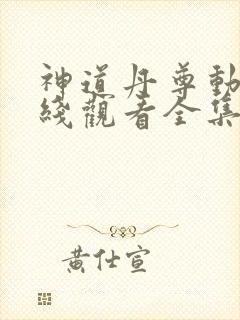 神道丹尊動
綫觀看全集
黄仕宣